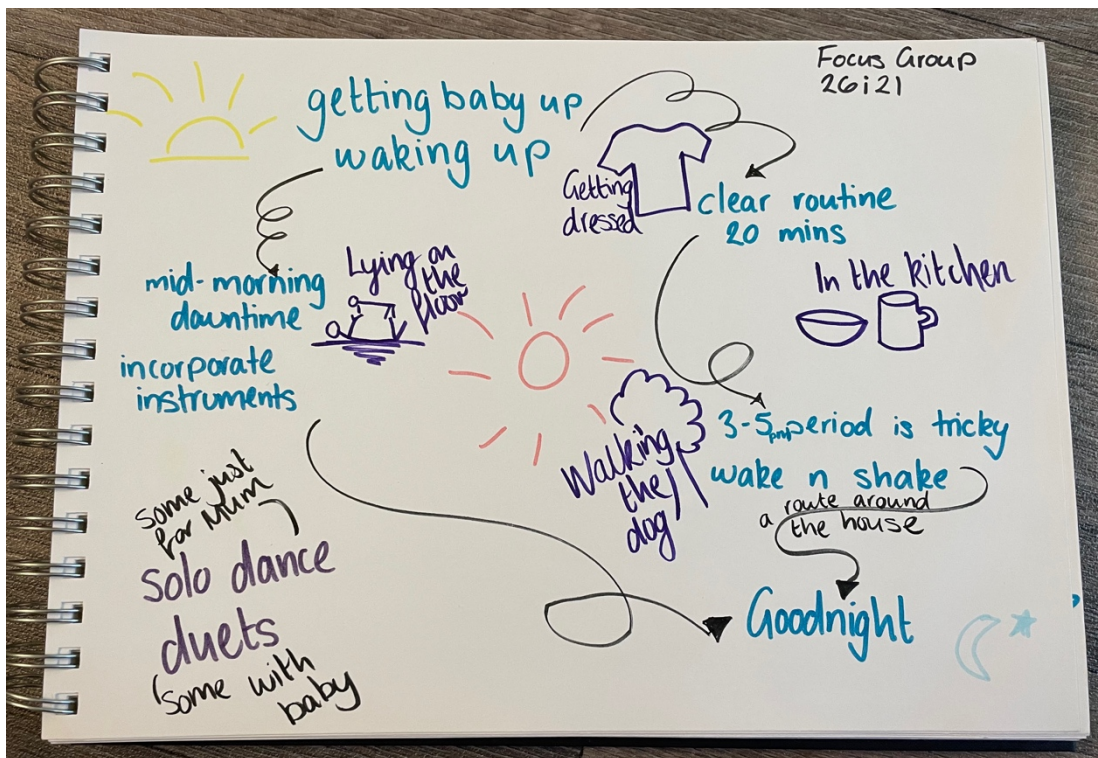 Focus Group
26i21
getting baby up
waking up
Getting
dressed
clear routine
20 mins
mid-morning
downtime
Lying on
the
floor
In the kitchen
incorporate
instruments
3-5pm period is tricky
Walking
the
dog
wake n shake
a route around
the house
some just
for Mum
solo dance
duets
some with
baby
Goodnight